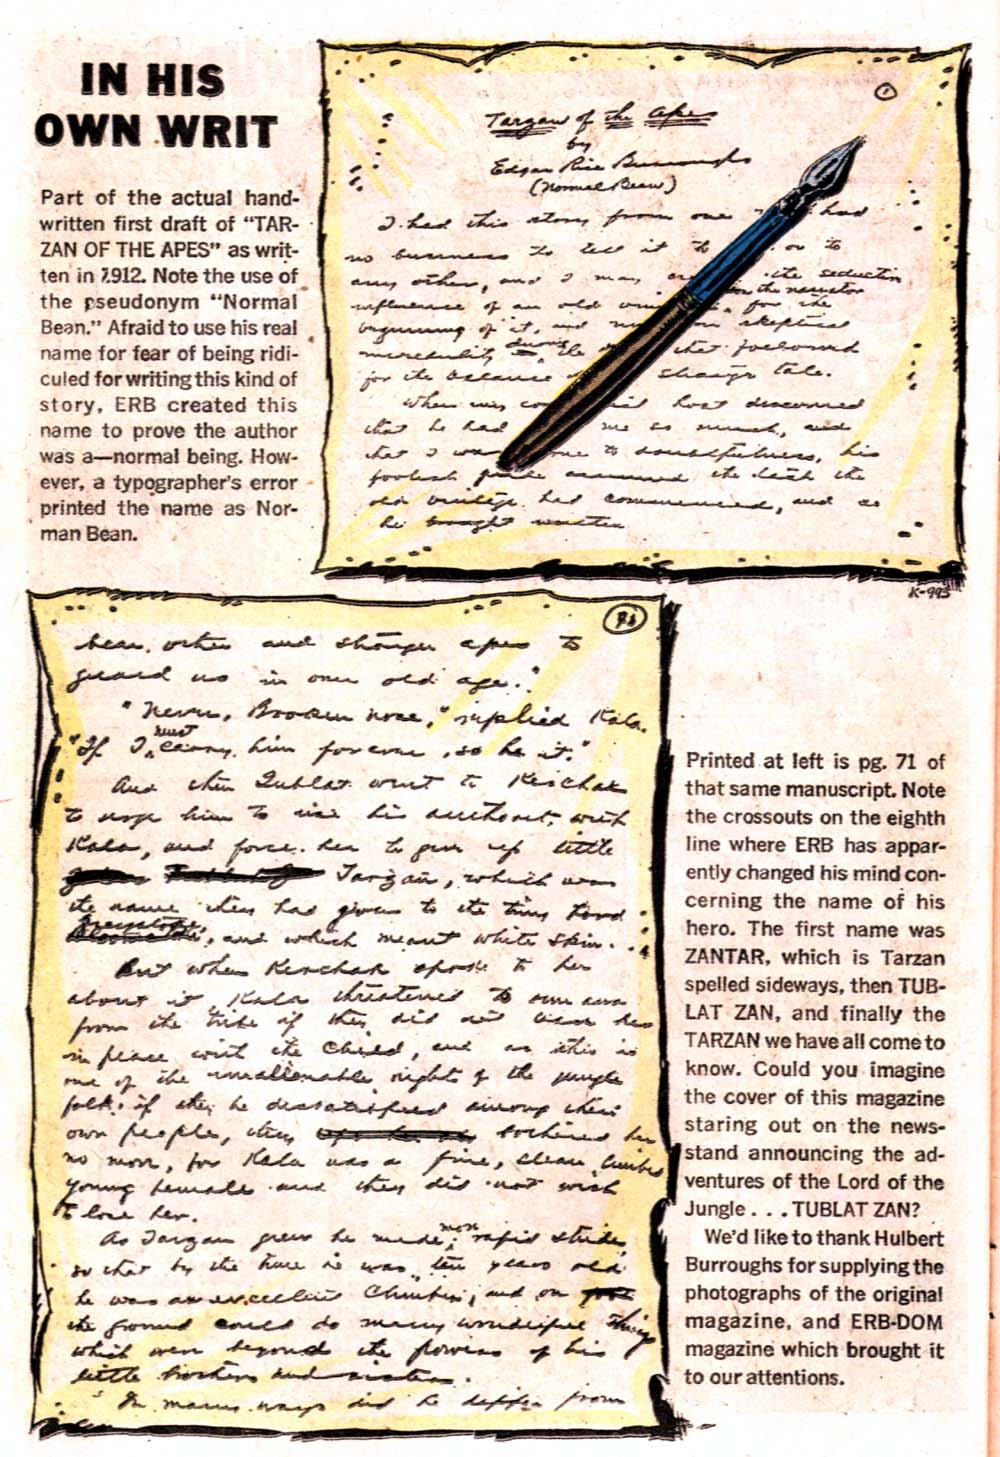 IN HIS
OWN WRIT
Part of the actual hand-
written first draft of “TAR-
ZAN OF THE APES” as writ-
ten in 1912. Note the use of
the pseudonym “Normal
Bean.” Afraid to use his real
name for fear of being ridi-
culed for writing this kind of
story, ERB created this
name to prove the author
was a—normal being. How-
ever, a typographer's error
printed the name as Nor-
man Bean.
1
Tarzan of the Apes
by
Edgar Rice Burroughs
(Normal Bean)
I had this story from one had
no business to tell it to or to
any other, and I may the seductive
the narrator
influence of an old for the
beginning of it, and skeptical
during
incredulity the that followed
for the balance strange tale.
When my host discovered
that he had me so much, and
that I was to doubtfulness, his
foolish pride assumed the task the
old vintage had commenced, and so
he written
K-993
bear other and stronger apes to
guard us in our old age."
"Never, Broken nose," replied Kala.
must
"If I carry him forever, so be it."
And then Tublat went to Kerchak
to urge him to use his authority with
Kala, and force her to give up little
Tarzan, which was
the name they had given to the tiny Lord
Greystoke, and which meant white skin.
But when Kerchak spoke to her
about it Kala threatened to run away
from the tribe if they did not leave her
in peace with the child, and as this is
one of the inalienable rights of the jungle
folk if they be dissatisfied among their
own people, they bothered her
no more, for Kala was a fine, clean limbed
young female and they did not wish
to lose her.
more
As Tarzan grew he made rapid strides
so that by the time he was ten years old
he was an excellent climber, and on
the ground could do many wonderful things
which were beyond the powers of his
little brothers and sisters.
In many ways did he differ from
Printed at left is pg. 71 of
that same manuscript. Note
the crossouts on the eighth
line where ERB has appar-
ently changed his mind con-
cerning the name of his
hero. The first name was
ZANTAR, which is Tarzan
spelled sideways, then TUB-
LAT ZAN, and finally the
TARZAN we have all come to
know. Could you imagine
the cover of this magazine
staring out on the news-
stand announcing the ad-
ventures of the Lord of the
Jungle . . . TUBLAT ZAN?
We'd like to thank Hulbert
Burroughs for supplying the
photographs of the original
magazine, and ERB-DOM
magazine which brought it
to our attentions.